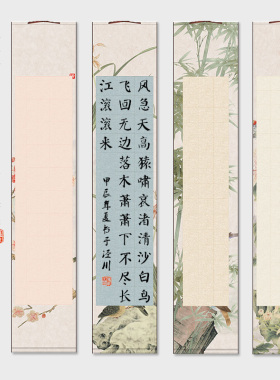 风急天高猿啸哀渚清沙白鸟
飞回无边落木萧萧下不尽长
江滚滚来
甲辰年夏书于泾川